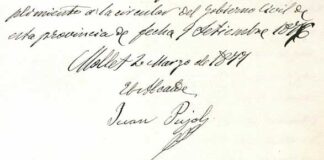 plimiento a la circular del Gobierno Civil de
esta provincia de fecha 9 Setiembre 1876
Mollet 2 Marzo de 1877
El Alcalde
Juan Pujol